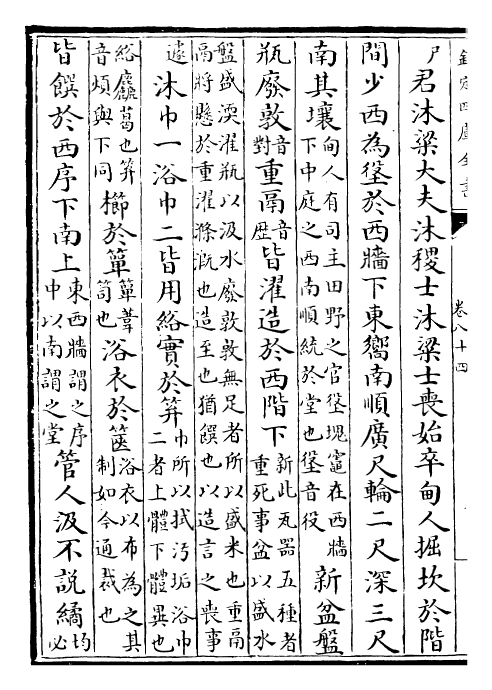 欽定四庫全書
卷八十四
尸君沐粱大夫沐稷士沐粱士喪始卒甸人掘坎於階
間少西為垼於西牆下東嚮南順廣尺輪二尺深三尺
南其壤甸人有司主田野之官垼塊竈在西牆下中庭之西南順統於堂也垼音役新盆盤
瓶廢敦音對重鬲音歷皆濯造於西階下新此瓦器五種者重死事盆以盛水
盤盛渜濯瓶以汲水廢敦敦無足者所以盛米也重鬲鬲將懸於重濯滌溉也造至也猶饌也以造言之喪事
遽沐巾一浴巾二皆用綌實於笲巾所以拭污垢浴巾二者上體下體異也
綌麤葛也笲音煩與下同櫛於簞簞葦笥也浴衣於篋浴衣以布為之其制如今通裁也
皆饌於西序下南上東西牆謂之序中以南謂之堂管人汲不說繘均必